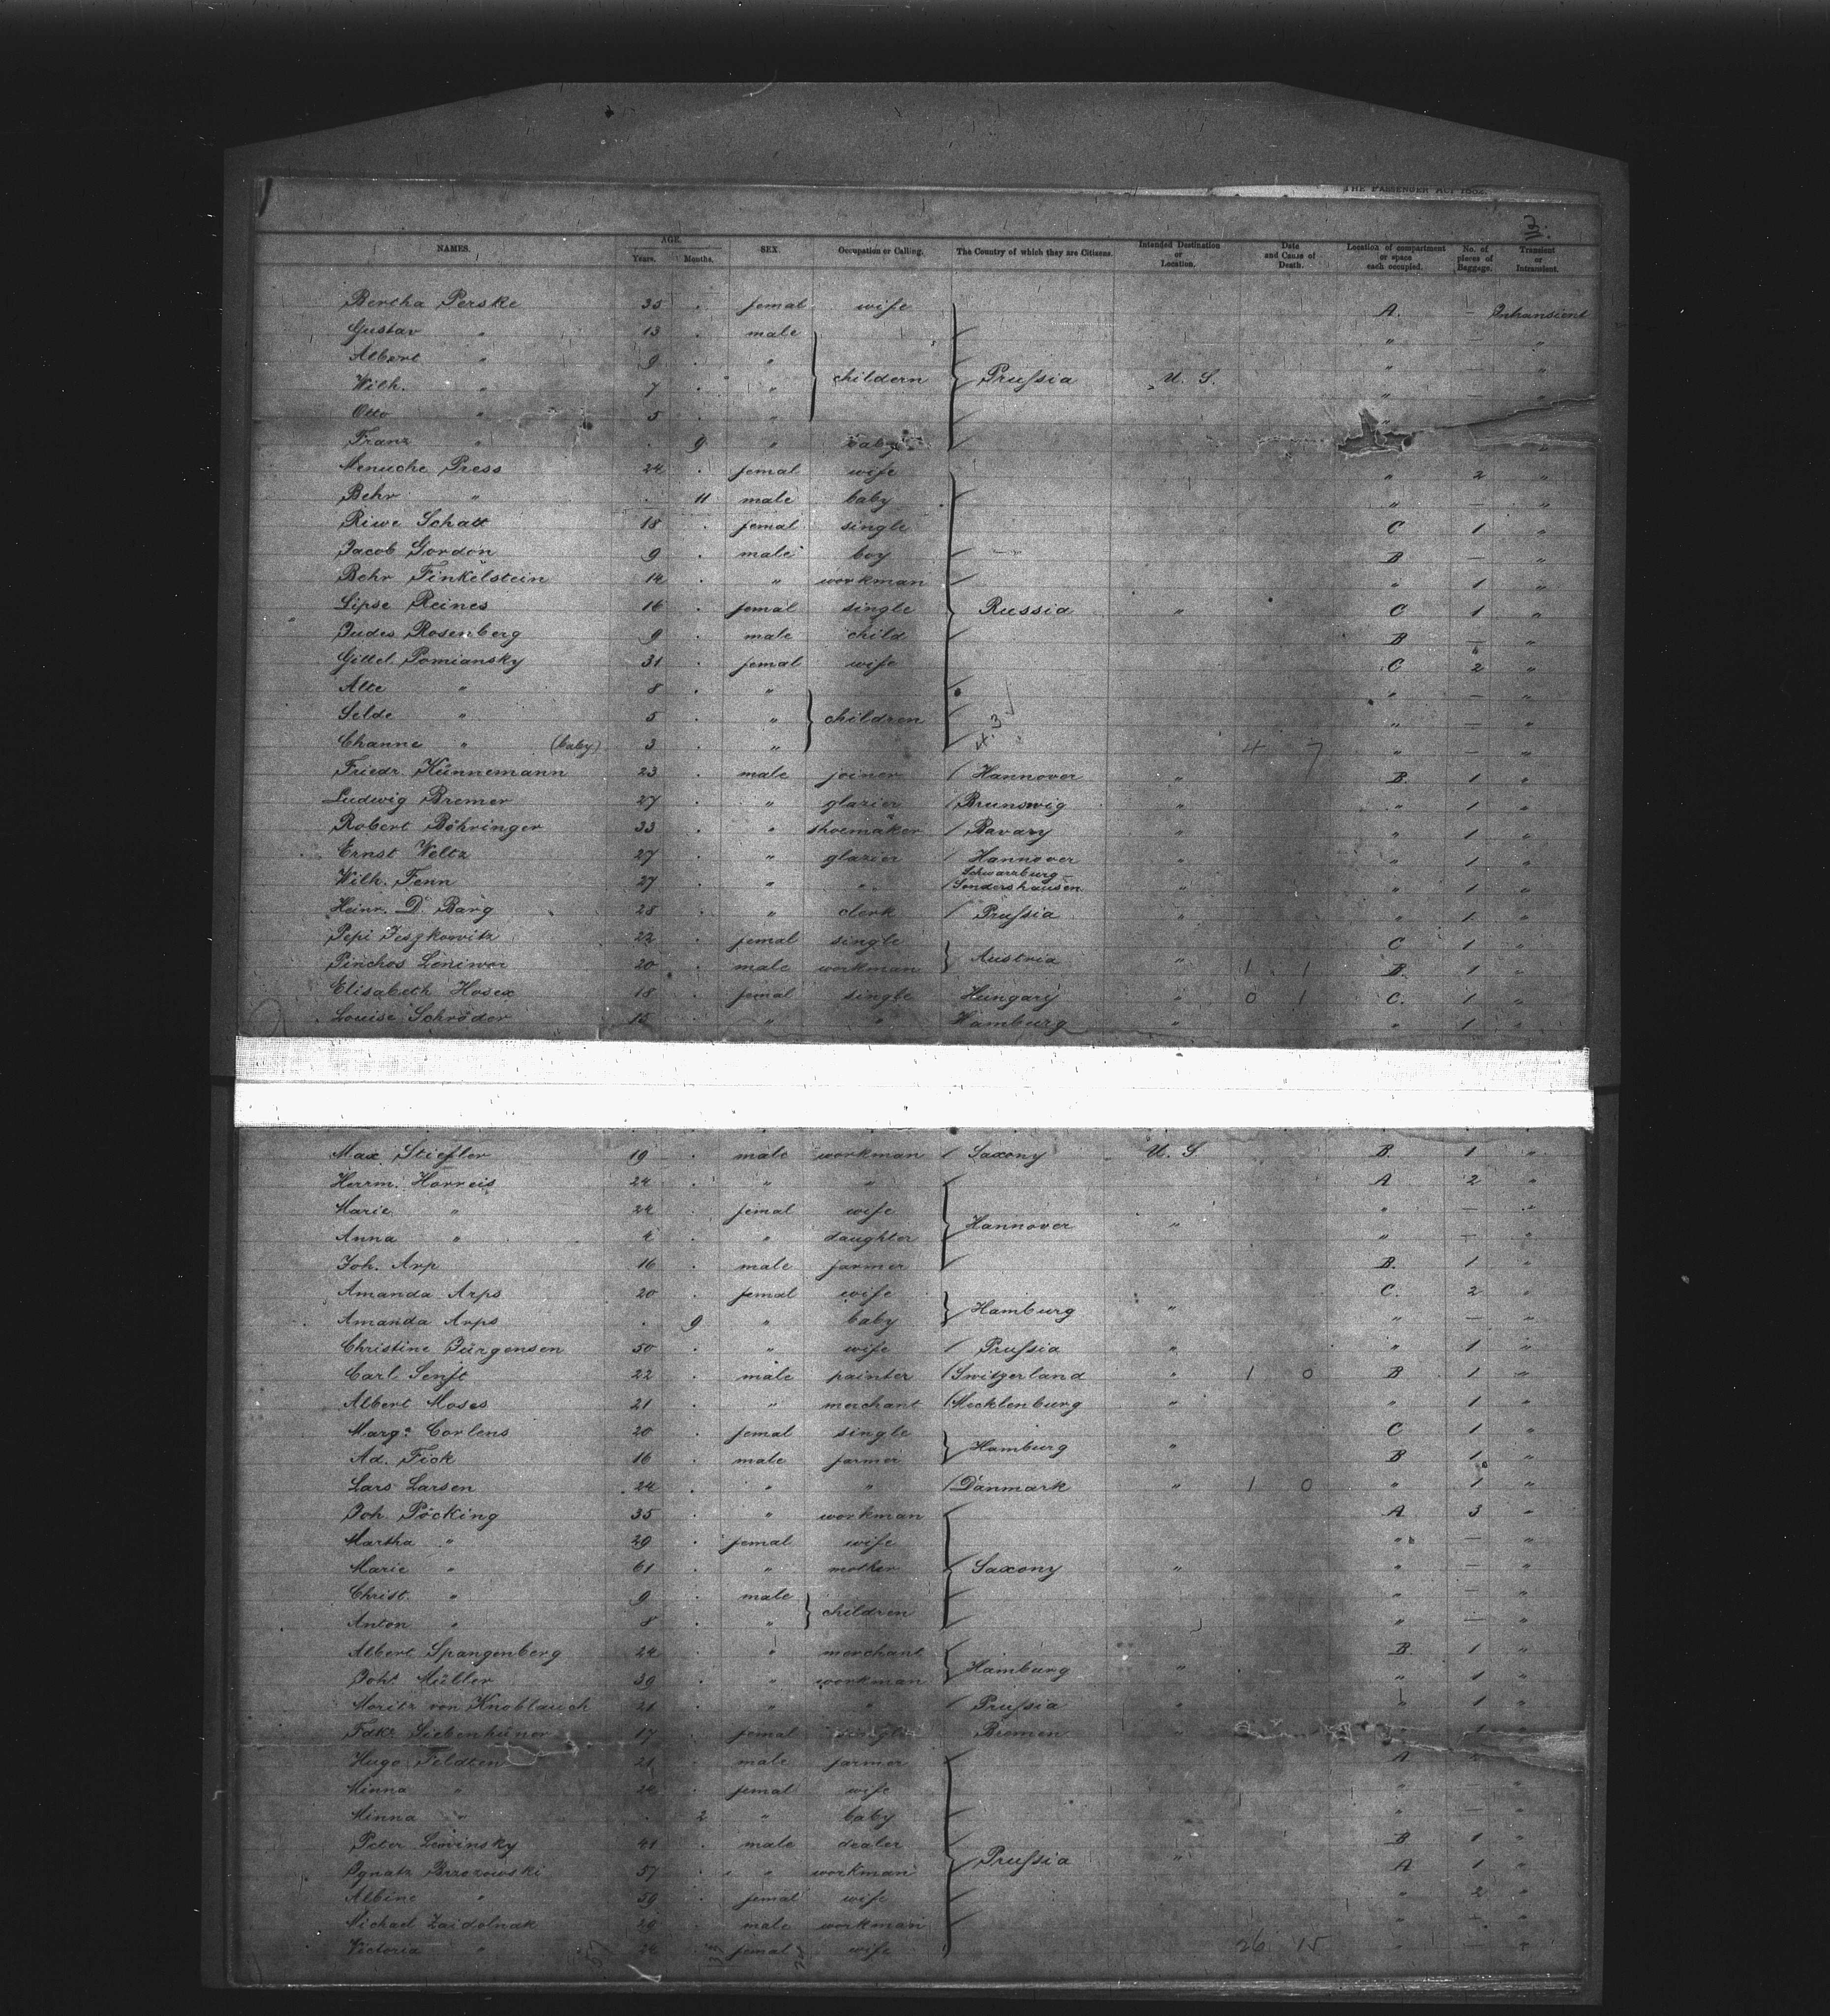 THE PASSENGER ACT 1882.
3.
NAMES. AGE. Years. Months. SEX. Occupation or Calling. The Country of which they are Citizens. Intended Destination or Location. Date and Cause of Death. Location of compartment or space each occupied. No. of pieces of Baggage. Transient or Intransient.
Bertha Perske 35 . femal wife A. — Intransient
Gustav " 13 . male " — "
Albert " 9 . " " — "
Wilh. " 7 . " childern Prussia U. S. " — "
Otto " 5 . " "
Franz " . 9 " baby "
Menuche Press 24 . femal wife " 2 "
Behr " . 11 male baby " — "
Riwe Schatt 18 . femal single C 1 "
Jacob Gordon 9 . male boy B — "
Behr Finkelstein 14 . " workman " 1 "
Lipse Reines 16 . femal single Russia " C 1 "
Judes Rosenberg 9 . male child B — "
Gittel Pomiansky 31 . femal wife C 2 "
Alte " 8 . " " — "
Selde " 5 . " children " — "
Channe " (baby) 3 . " 4 7 " — "
Friedr. Künnemann 23 . male joiner Hannover " B. 1 "
Ludwig Bremer 27 . " glazier Brunswig " " 1 "
Robert Böhringer 33 . " shoemaker Bavary " " 1 "
Ernst Weltz 27 . " glazier Hannover " " 1 "
Wilh. Fenn 27 . " " Schwarzburg-Sondershausen " " 1 "
Heinr. D. Barg 28 . " clerk Prussia " " 1 "
Pepi Jeszkowitz 22 . femal single C 1 "
Pinchos 20 . male workman Austria " 1 1 B. 1 "
Elisabeth Hosex 18 . femal single Hungary " 0 1 C. 1 "
Louise Schröder " " Hamburg " " 1 "
Max Stiefler 19 . male workman Saxony U. S B. 1 "
Herrm. Horreis 24 . " " A 2 "
Marie " 24 . femal wife " — "
Anna " 4 . " daughter Hannover " " — "
Joh. Arp 16 . male farmer B. 1 "
Amanda Arps 20 . femal wife C. 2 "
Amanda Arps . 9 " baby Hamburg " " — "
Christine Jürgensen 50 . " wife Prussia " " 1 "
Carl Senft 22 . male painter Switzerland " 1 0 B 1 "
Albert Moses 21 . " merchant Mecklenburg " " 1 "
Marga. Corlens 20 . femal single C 1 "
Ad. Fick 16 . male farmer Hamburg " B 1 "
Lars Larsen 24 . " " Danmark " 1 0 " 1 "
Joh. Pöcking 35 . " workman A 3 "
Martha " 29 . femal wife " — "
Marie " 61 . " mother Saxony " " — "
Christ. " 9 . male " — "
Anton " 8 . " children " — "
Albert Spangenberg 24 . " merchant B. 1 "
Joh. Müller 39 . " workman Hamburg " " 1 "
Moritz von Knoblauch 21 . " " Prussia " " 1 "
Siebenhüner 17 . femal single Bremen " 1 "
Hugo Feldten 21 . male farmer A
Minna " femal wife " — "
Minna " . 2 " baby " — "
Peter Lewinsky 41 . male dealer B 1 "
Ignatz Brzezowski 57 . " workman Prussia " A 1 "
Albine " 59 . femal wife " 2 "
Michael Zaidolnak 29 . male workman " — "
Victoria " 24 femal wife 26 15 " — "